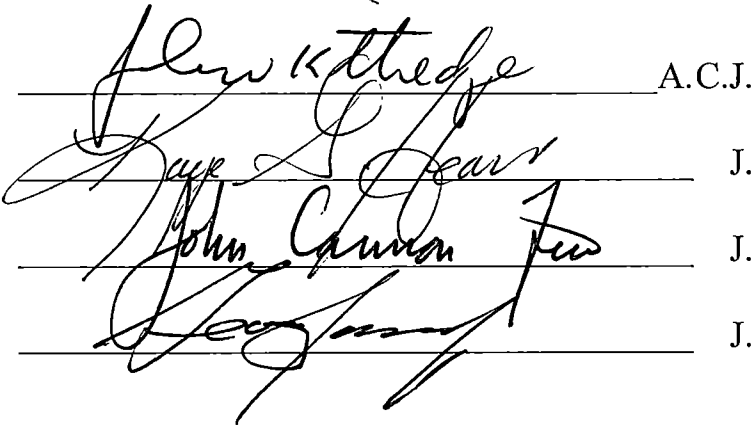 John Kittredge A.C.J.
Kaye G Hearn J.
John Cannon Few J.
J.